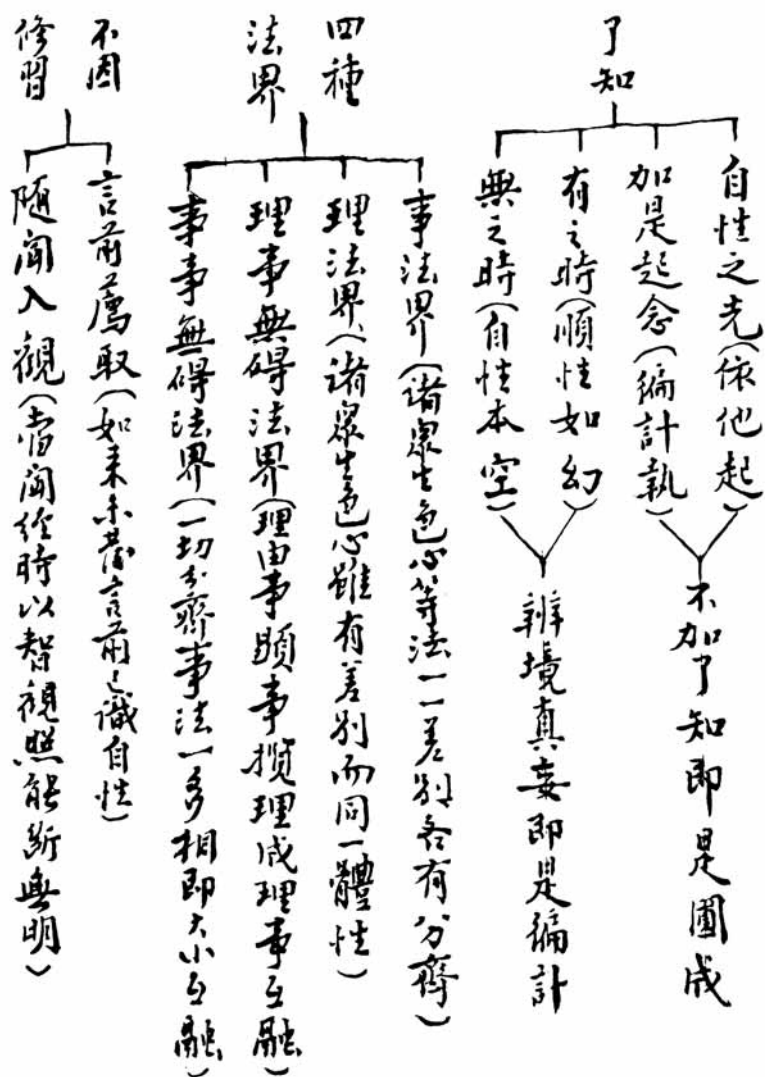 了知
自性之先(依他起)
加是起念(徧計執)
不加了知即是圓成
有之時(順性如幻)
無之時(自性本空)
辨境真妄即是徧計
四種
法界
事法界(諸眾生色心等法一一差別各有分齊)
理法界(諸眾生色心雖有差別而同一體性)
理事無碍法界(理由事顯事攬理成理事互融)
事事無碍法界(一切分齊事法一多相即大小互融)
不因
修習
言前薦取(如來未發言前已識自性)
隨聞入觀(當聞經時以智觀照能斷無明)